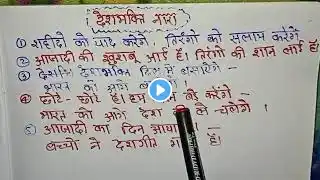 देशभक्ति नारा
① शहीदों को याद करेंगे तिरंगे को सलाम करेंगे
② आज़ादी की खुशबू आई है। तिरंगे की शान लाई है।
③ देशभक्ति दिल में बसाएंगे -
भारत को आगे
④ छोटे - छोटे हैं। हम बड़े करेंगे -
भारत को आगे देश ले चलेंगे।
⑤ आज़ादी का दिन आया -
बच्चों ने देशगीत है।